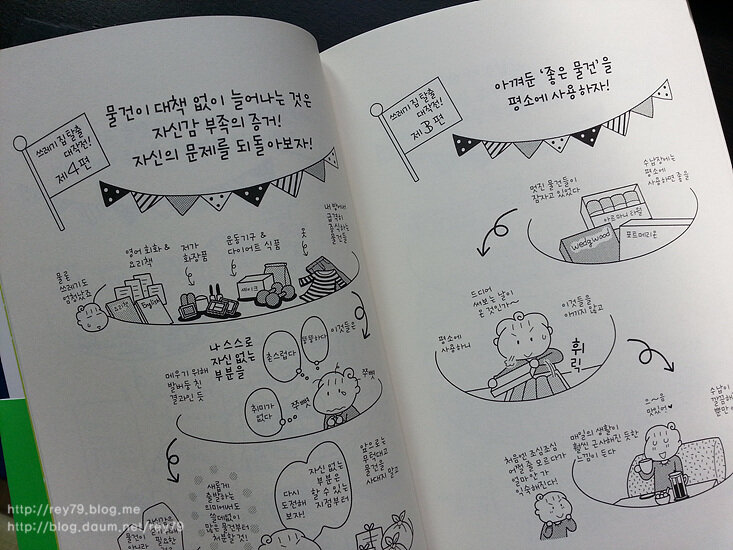 쓰레기 집 탈출
대작전!
제4편
물건이 대책 없이 늘어나는 것은
자신감 부족의 증거!
자신의 문제를 되돌아보자!
물론
쓰레기도
엄청났죠
영어 회화 &
요리책
저가
화장품
운동기구 &
다이어트 식품
옷
내 방에서
급격히
증식하는
물건들
요리책
English
메우기 위해
발버둥 친
결과인 듯
나 스스로
자신 없는
부분을
촌스럽다
뚱뚱하다
이것들은
취미가
없다
쭈뼛
쭈뼛
새롭게
출발하는
의미에서도
쓸데없이
많은 물건부터
처분할 것!
다시
도전해
보자!
자신 없는
부분은
할 수 있는
지점부터
앞으로는
무턱대고
물건을
사대지 말고
물건이
아니라
필요한
쓰레기 집 탈출
대작전!
제3편
아껴둔 '좋은 물건'을
평소에 사용하자!
멋진 물건들이
잠자고 있었다
수납장에는
평소에
사용하면 좋을
아르마니 타월
wedgwood
포트메리온
드디어
써보는 날이
온 것인가~
평소에
사용하니
이것들을
아끼지 않고
휘릭
처음엔 조심조심
어쩔 줄 모르다가
얼마 안 가
익숙해진다!
매일의 생활이
훨씬 근사해진 듯한
느낌이 든다
으~음
맛있어♥
수납이
깔끔해
뿐만 아
http://rey79.blog.me
http://blog.daum.net/rey79